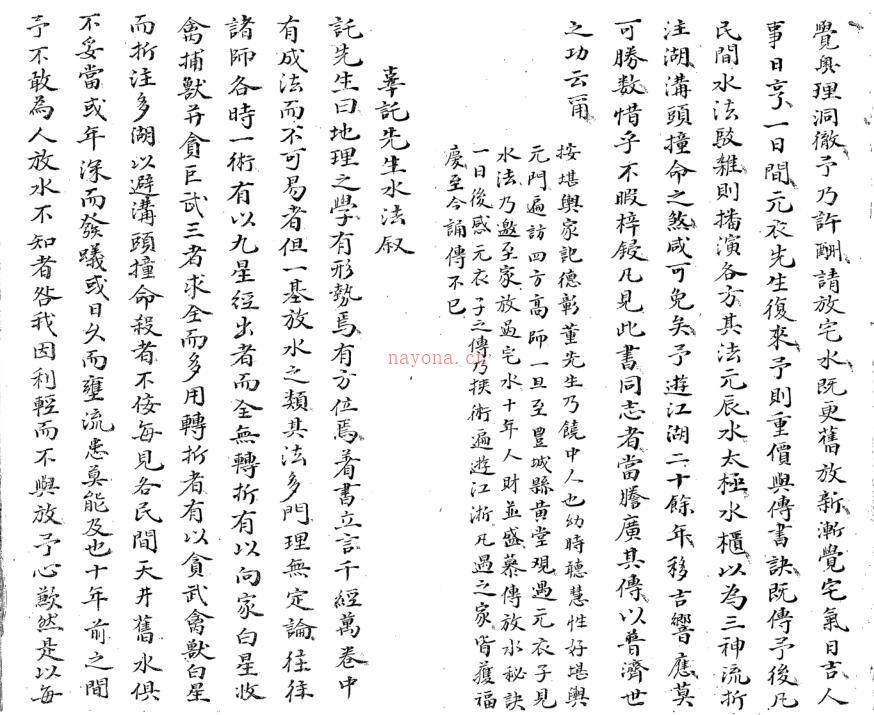 覺與理洞徹予乃許酬請放宅水既更舊放新漸覺宅氣日吉人
事日亨一日間元衣先生復來予則重價與傳書訣既傳予後凡
民間水法駁雜則播演各方其法元辰水太極水櫃以為三神流折
注湖溝頭撞命之煞咸可免矣予遊江湖二十餘年移吉響應莫
可勝数惜乎不暇梓鋟凡見此書同志者當謄廣其傳以普濟世
之功云爾
按堪輿家記德彰董先生乃饒中人也幼時聰慧性好堪輿
元門遍訪四方高師一旦至豐城縣黄堂觀遇元衣子見
水法乃邀至家放過宅水十年人財並盛慕傳放水秘訣
一日後感元衣子之傳乃挾術遍遊江浙凡過之家皆獲福
慶至今誦傳不已
辜託先生水法敘
託先生曰地理之學有形勢焉有方位焉着書立言千經萬卷中
有成法而不可易者但一基放水之類其法多門理無定論往徃
諸師各時一術有以九星經出者而全無轉折有以向家白星收
禽捕獸并貪巨武三者求全而多用轉折者有以貪武禽獸白星
而折注多湖以避溝頭撞命殺者不侫每見各民間天井舊水俱
不妥當或年深而發蟻或日久而壅流患莫能及也十年前之間
予不敢為人放水不知者咎我因利輕而不與放予心歉然是以每
nayona.cn